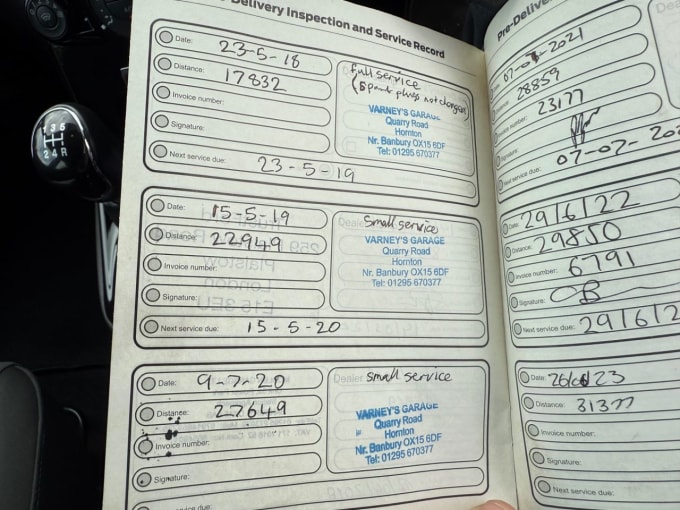 1 3 5
2 4 R
Pre-Delivery Inspection and Service Record
Date: 23-5-18
Distance: 17832
Invoice number:
Signature:
Next service due: 23-5-19
full service
(Spark plugs not changed)
VARNEY'S GARAGE
Quarry Road
Hornton
Nr. Banbury OX15 6DF
Tel: 01295 670377
Date: 15-5-19
Distance: 22949
Invoice number:
Signature:
Next service due: 15-5-20
Dealer
small service
VARNEY'S GARAGE
Quarry Road
Hornton
Nr. Banbury OX15 6DF
Tel: 01295 670377
Date: 9-7-20
Distance: 27649
Invoice number:
Signature:
service due:
Dealer
small service
VARNEY'S GARAGE
Quarry Road
Hornton
Nr. Banbury OX15 6DF
Tel: 01295 670377
Date: 07-07-2021
28859
number: 23177
Signature:
Next service due: 07-07-202
Date: 29/6/22
Distance: 29850
Invoice number: 6791
Signature:
Next service due: 29/6/2
Date: 23
Distance: 31377
Invoice number:
Signature:
Next service due: